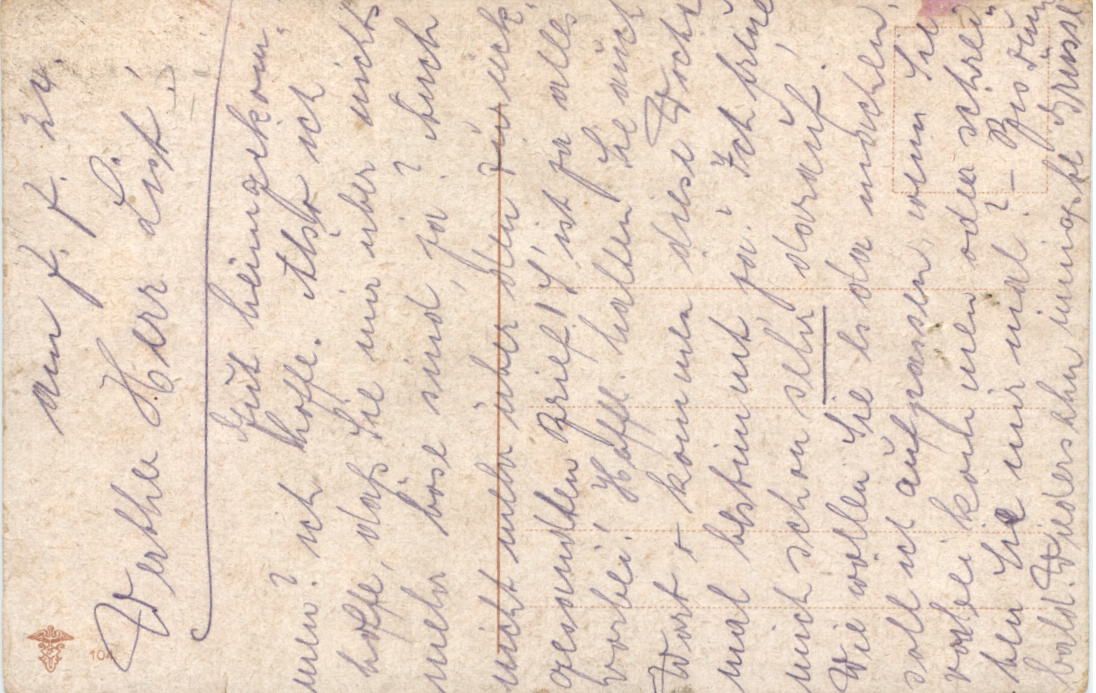 am 7. 7. 24.
Werther Herr List!
Gut heimgekom-
men? ich hoffe. Also ich
hoffe, daß Sie mir über nichts
mehr böse sind, ja? Auch
nicht mehr über den zurück-
gesandten Brief! S'ist ja alles
vorbei! Hoff. halten Sie auch
Wort & kommen diese Woche
mal bestimmt, ja? Ich freue
mich schon sehr darauf!
Wie wollen Sie es da machen,
soll ich aufpassen, wenn Sie
vorbei kommen oder schrei-
ben Sie mir mal? – Bis dann
bald. Wiedersehn innigste Grüsse
104